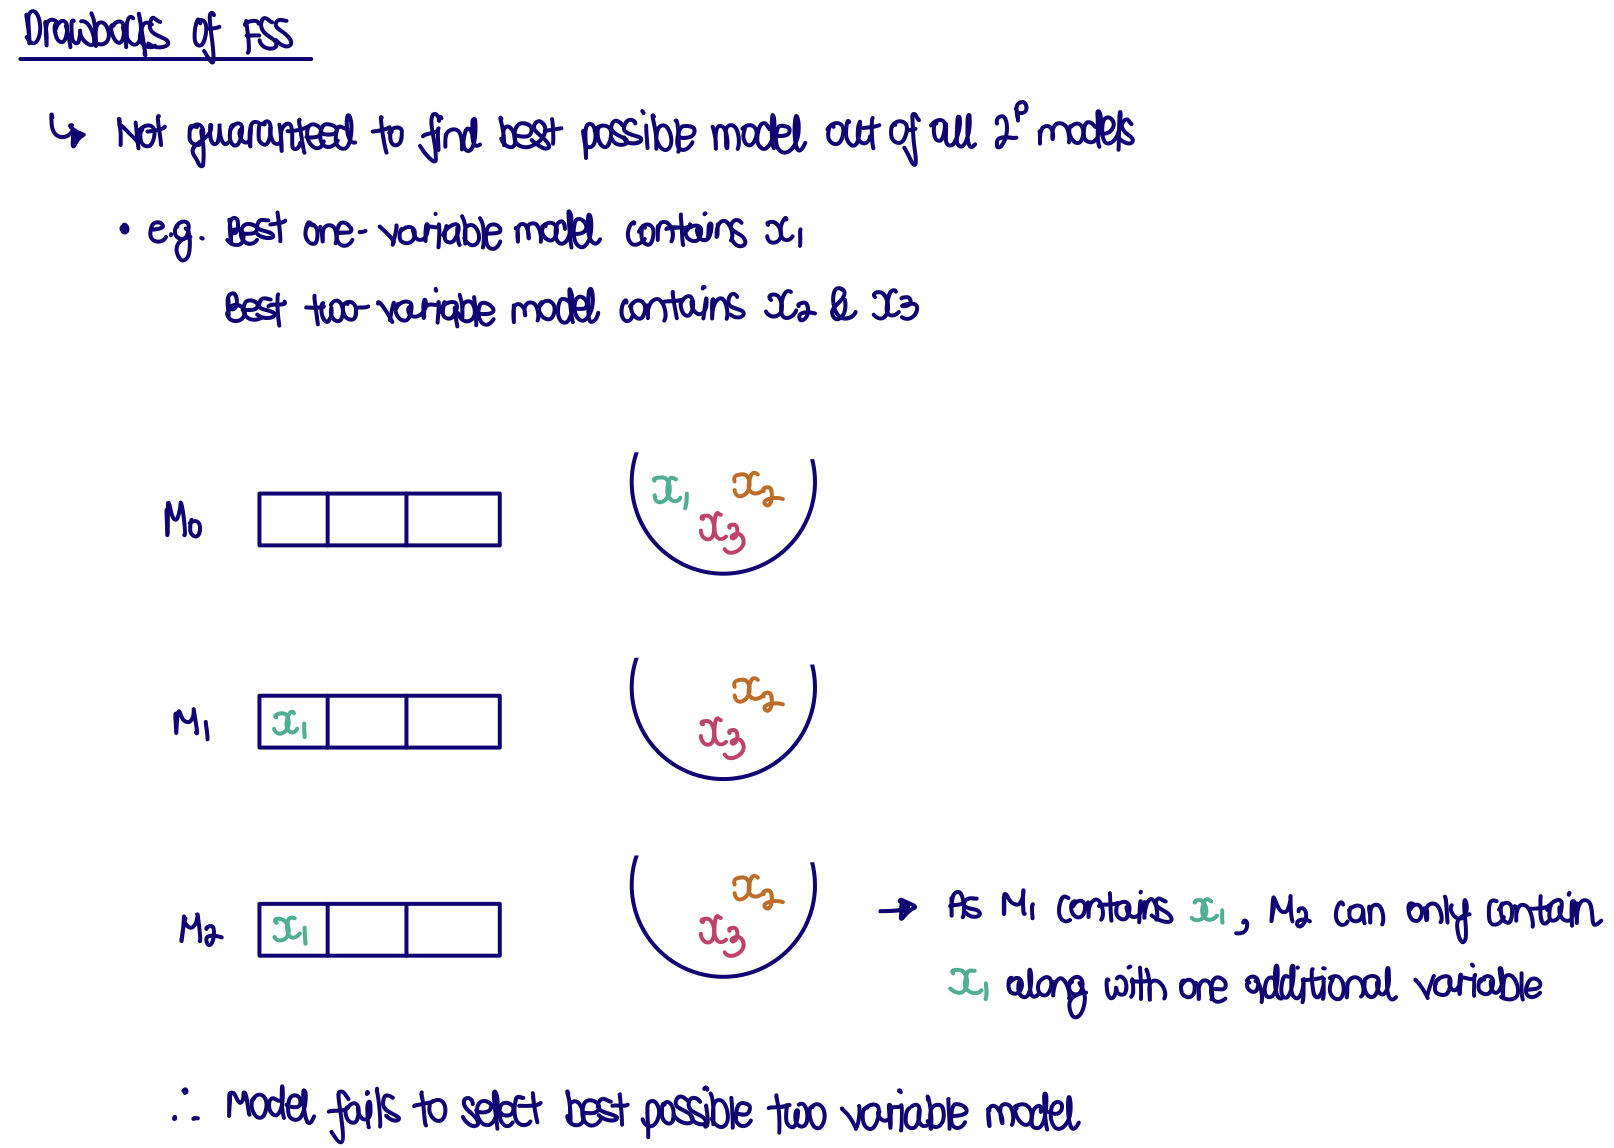 Drawbacks of FSS
↳ Not guaranteed to find best possible model out of all 2^p models
• e.g. Best one-variable model contains x₁
Best two-variable model contains x₂ & x₃
M₀ x₁ x₂ x₃
M₁ x₁ x₂ x₃
M₂ x₁ x₂ x₃ → As M₁ contains x₁, M₂ can only contain
x₁ along with one additional variable
∴ Model fails to select best possible two variable model